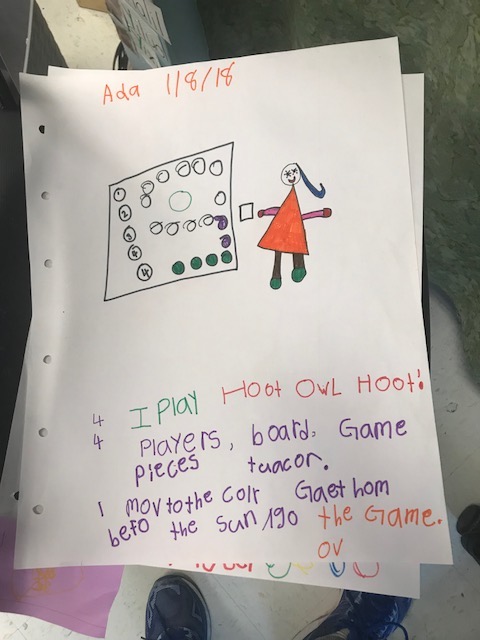 Ada 1/8/18
2
3
4
4
4 I PLAY Hoot OWL HOOt!
4 PLayers, board. Game
pieces tuacor.
1 mov to the colr Gaet hom
befo the sun 190 the Game.
ov